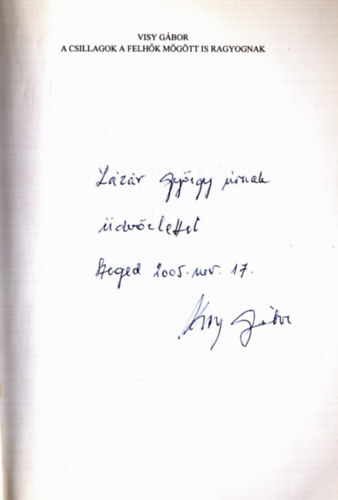 VISY GÁBOR
A CSILLAGOK A FELHŐK MÖGÖTT IS RAGYOGNAK
Lázár György úrnak
üdvözlettel
Szeged 2005. nov. 17.
Visy Gábor